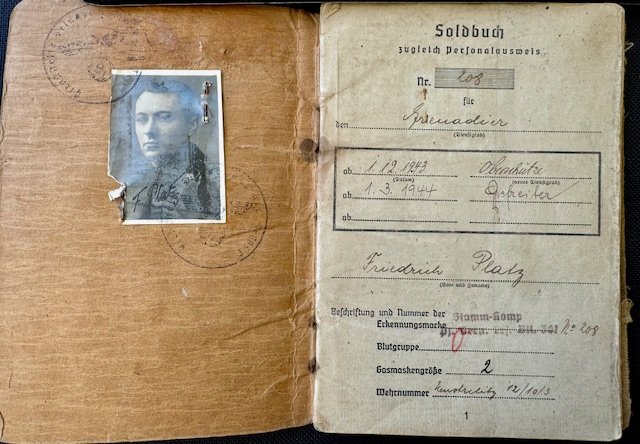 F. Platz
Soldbuch
zugleich Personalausweis
Nr. 208
für
den Grenadier
(Dienstgrad)
ab 1.12.1943 Oberschütze
(Datum) (neuer Dienstgrad)
ab 1.3.1944 Gefreiter
ab
Friedrich Platz
(Vor- und Zuname)
Beschriftung und Nummer der Stamm-Komp
Erkennungsmarke Ers. Btl. No 208
Blutgruppe
Gasmaskengröße 2
Wehrnummer Neustrelitz 12/10/3
1